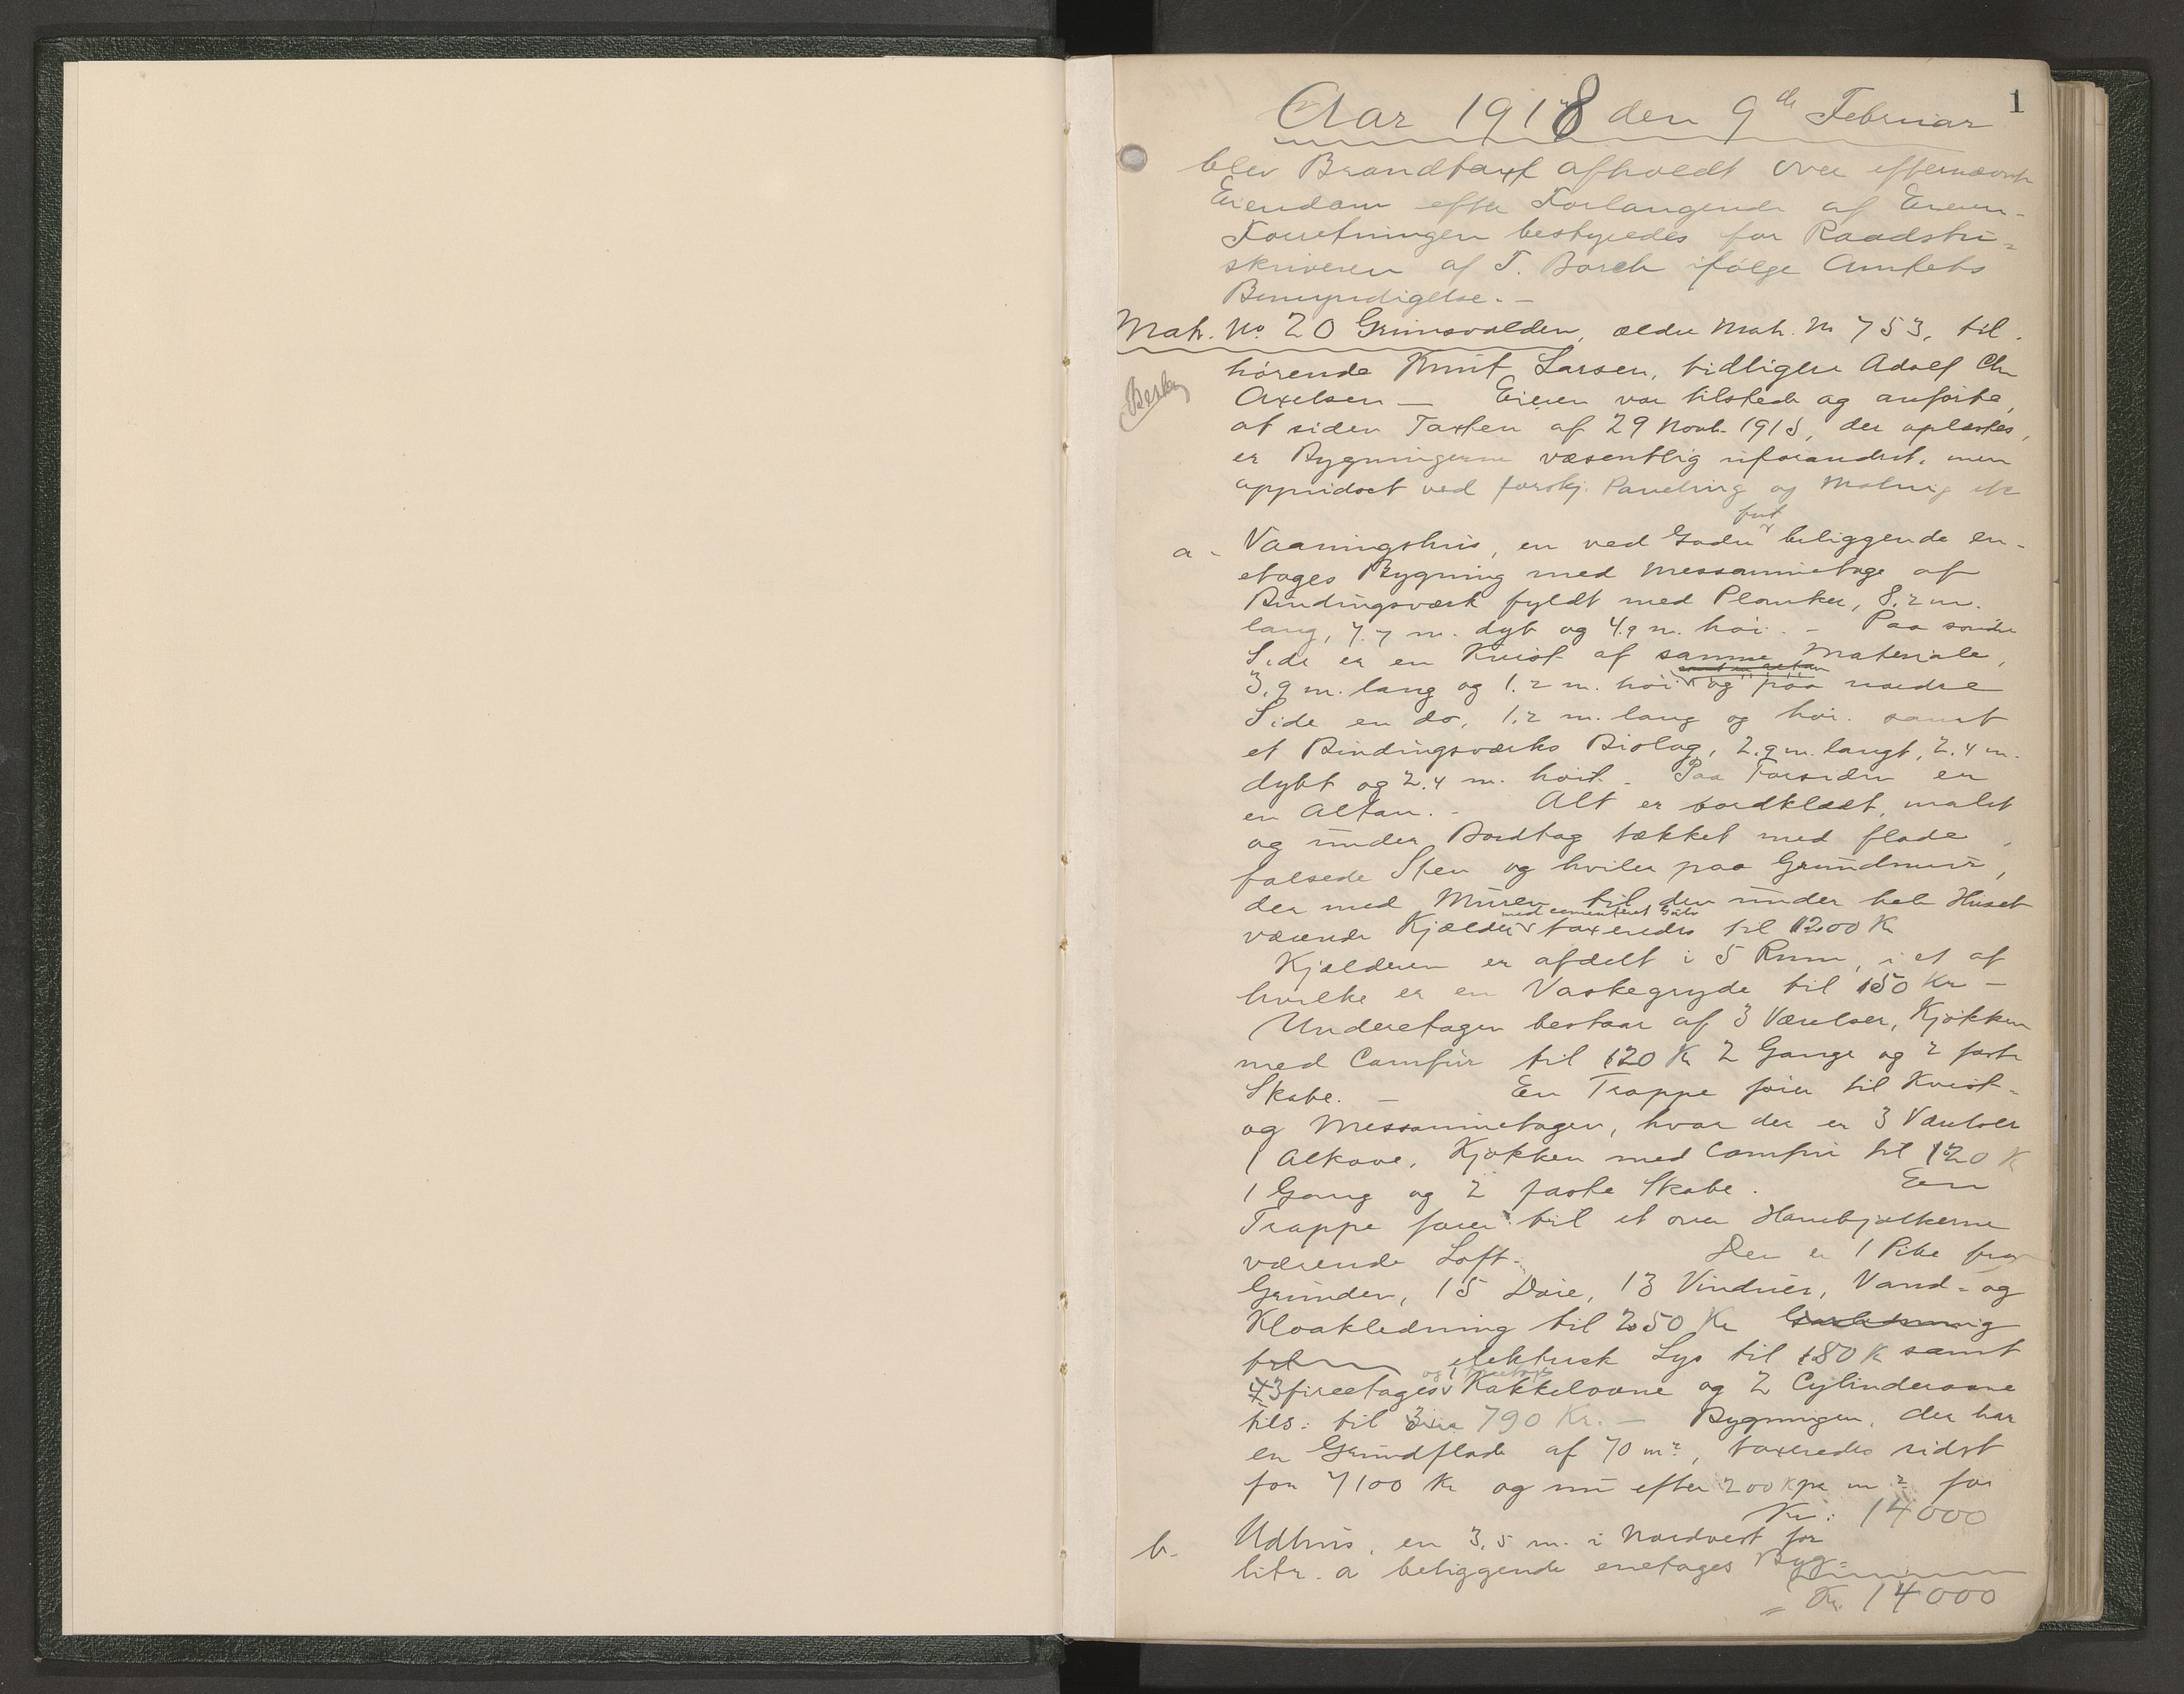 1
Aar 1918 den 9de Februar
blev Brandtaxt afholdt over efternævnte
Eiendom efter Forlangende af Eieren.
Forretningen bestyredes for Raadstu=
skriveren af T. Borch ifølge Amtets
Bemyndigelse. —
Matr. No. 20 Grimsvolden, ældre Matr. No 753, til.
hørende Knut Larsen, tidligere Adolf Chr
Besky
Axelsen — Eieren var tilstede og anførte,
at siden Taxten af 29 Novb. 1915, der oplæstes,
er Bygningerne væsentlig uforandret, men
oppudset ved forskj. Paneling og Maling etc
fast
a - Vaaningshus, en ved Gaden beliggende en-
etages Bygning med Messaninetage af
Bindingsværk fyldt med Planker, 8.2 m.
lang, 7.7 m. dyb og 4.9 m. høi. - Paa søndre
Side er en Kvist af samme Materiale,
3.9 m. lang og 1.2 m. høi og paa nordre
Side en do, 1.2 m. lang og høi. samt
et Bindingsværks Bislag, 2.9 m. langt, 2.4 m.
dybt og 2.4 m. høit. - Paa Forsiden er
en Altan. - Alt er bordklædt, malet
og under Bordtag tækket med flade,
falsede Sten og hviler paa Grundmur,
der med Muren til den under hele Huset
med cementeret Gulv
værende Kjælder taxeredes til 1200 K
Kjælderen er afdelt i 5 Rum, i et af
hvilke er en Vaskegryde til 150 Kr -
Underetagen bestaar af 3 Værelser, Kjøkken
med Comfur til 120 Kr 2 Gange og 2 faste
Skabe. - En Trappe fører til Kvist-
og Messaninetagen, hvor der er 3 Værelser
1 Alkove, Kjøkken med Comfur til 120 K
1 Gang og 2 faste Skabe. En
Trappe fører til et over Hanebjælkerne
værende Loft. Der er 1 Pibe fra
Grunden, 15 Døre, 13 Vinduer, Vand- og
Kloakledning til 250 Kr Gasledning
til elektrisk Lys til 180 K samt
og 1
3 fireetages Kakkelovne og 2 Cylinderovne
tils: til 790 Kr. - Bygningen, der har
en Grundflade af 70 m2, taxeredes sidst
for 7100 Kr og nu efter 200 K pr m2 for
Kr: 14000
b. Udhus, en 3,5 m. i Nordvest for
litr. a beliggende enetages Byg=
= Kr. 14000